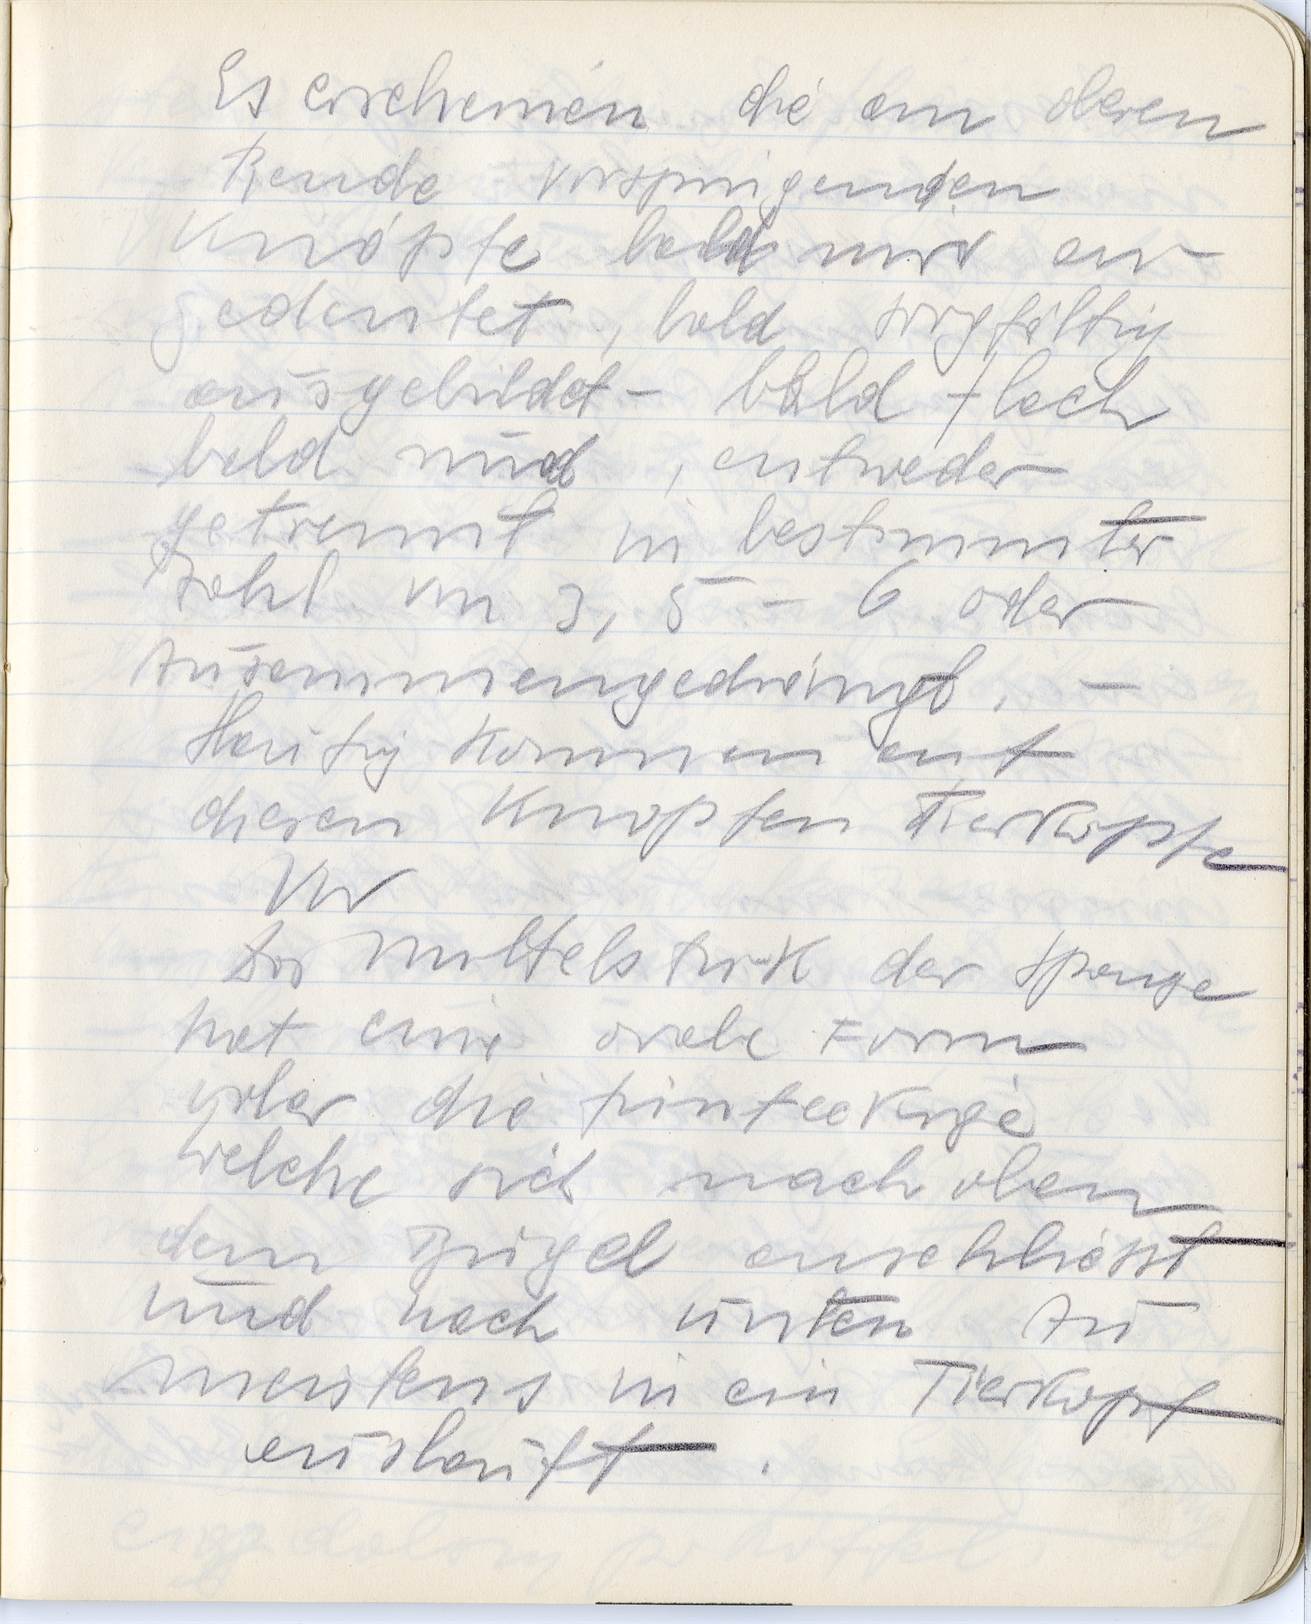 Es erscheinen die am oberen
Rande vorspringenden
Knöpfe bald nur an-
gedeutet, bald sorgfältig
ausgebildet – bald flach
bald rund, entweder
getrennt in bestimmter
Zahl von 3, 5 – 6 oder
zusammengedrängt. –
Häufig kommen auf
diesen Knöpfen Tierköpfe
vor
Das Mittelstück der Spange
hat eine ovale Form
oder die fünfeckige
welche sich nach oben
dem Bügel anschliesst
und nach unten zu
meistens in ein Tierkopf
ausläuft.